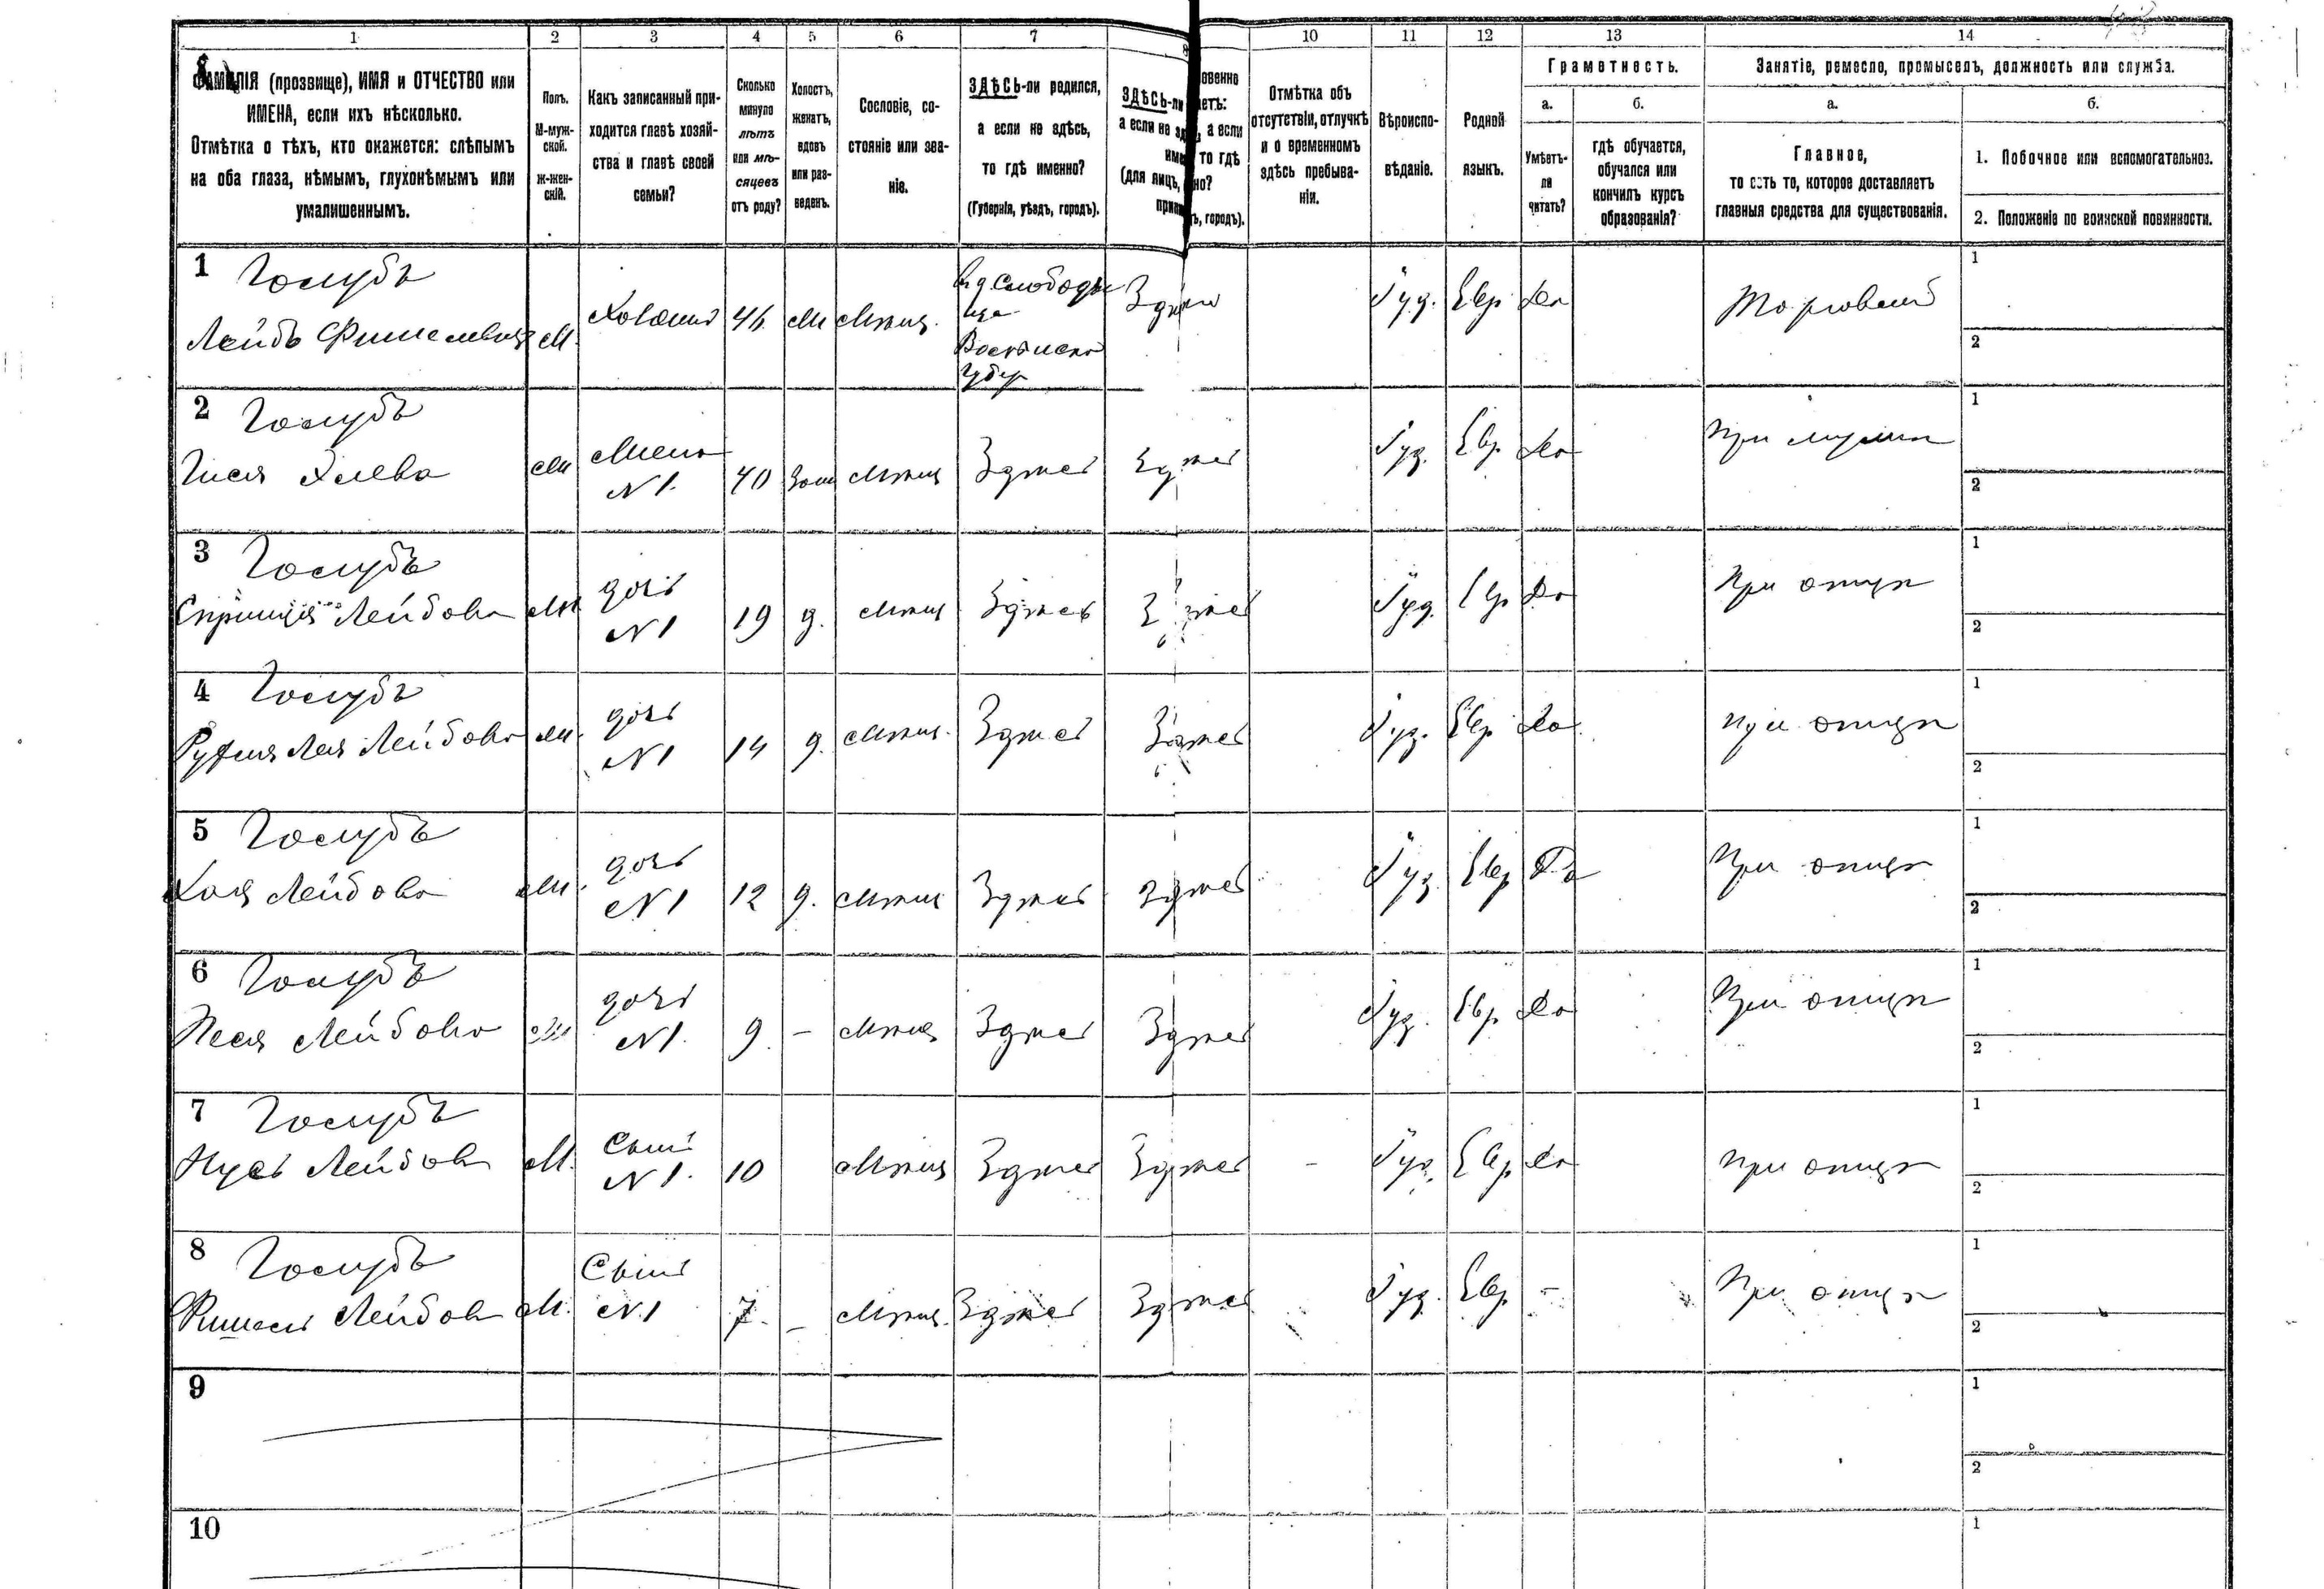 1 2 3 4 5 6 7 8 10 11 12 13 14
ФАМИЛІЯ (прозвище), ИМЯ и ОТЧЕСТВО или
ИМЕНА, если ихъ нѣсколько.
Отмѣтка о тѣхъ, кто окажется: слѣпымъ
на оба глаза, нѣмымъ, глухонѣмымъ или
умалишеннымъ.
Полъ.
М-муж-
ской.
Ж-жен-
скій.
Какъ записанный при-
ходится главѣ хозяй-
ства и главѣ своей
семьи?
Сколько
минуло
лѣтъ
или мѣ-
сяцевъ
отъ роду?
Холостъ,
женатъ,
вдовъ
или раз-
веденъ.
Сословіе, со-
стояніе или зва-
ніе.
ЗДѢСЬ-ли родился,
а если не здѣсь,
то гдѣ именно?
(Губернія, уѣздъ, городъ).
ЗДѢСЬ-ли
а если не зд
име
(для лицъ,
припи
овенно
етъ:
, а если
то гдѣ
но?
ъ, городъ).
Отмѣтка объ
отсутствіи, отлучкѣ
и о временномъ
здѣсь пребыва-
ніи.
Вѣроиспо-
вѣданіе.
Родной
языкъ.
Грамотность.
а. б.
Умѣетъ-
ли
читать?
гдѣ обучается,
обучался или
кончилъ курсъ
образованія?
Занятіе, ремесло, промыселъ, должность или служба.
а. б.
Главное,
то есть то, которое доставляетъ
главныя средства для существованія.
1. Побочное или вспомогательное.
2. Положеніе по воинской повинности.
1 Голубъ
Лейбъ Фишелевъ М. Хозяинъ 46 Мѣщ. Здѣсь Іуд. Евр Да Торговецъ 1
2
губер
2 Голубъ
N 1. 40 Мѣщ Здѣсь Здѣсь Іуд. Евр. Да При мужѣ 1
2
3 Голубъ
Лейбова дочь
N 1 19 д. Мѣщ Здѣсь Здѣсь Іуд. Евр Да При отцѣ 1
2
4 Голубъ
Лея Лейбова дочь
N 1 14 д. Мѣщ. Здѣсь Здѣсь Іуд. Евр Да При отцѣ 1
2
5 Голубъ
Хая Лейбова дочь
N 1 12 д. Мѣщ Здѣсь Здѣсь Іуд. Евр Да При отцѣ 1
2
6 Голубъ
Песя Лейбова дочь
N 1. 9. – Мѣщ Здѣсь Здѣсь Іуд. Евр Да При отцѣ 1
2
7 Голубъ
Нусь Лейбовъ М. Сынъ
N 1. 10 Мѣщ Здѣсь Здѣсь – Іуд. Евр Да При отцѣ 1
2
8 Голубъ
Фишель Лейбовъ М. Сынъ
N 1 7. – Мѣщ. Здѣсь Здѣсь Іуд. Евр. – При отцѣ 1
2
9 1
2
10 1